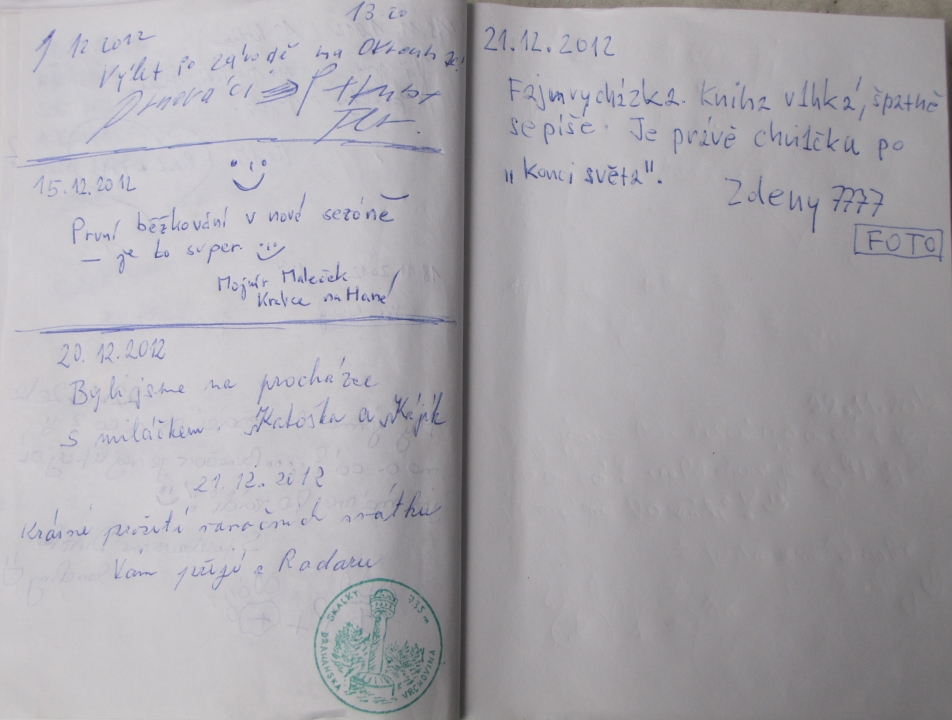 13 20
1 12 2012
Výlet po závodě na
15.12.2012
První běžkování v nové sezóně
– je to super.
Mojmír Maleček
Kralice na Hané
20.12.2012
Byli jsme na procházce
s miláčkem. Katoška a Kájík
21.12.2012
Krásné prožití vánočních svátku
Vám přejí z Radaru
SKALKY 735 m
DRAHANSKÁ VRCHOVINA
21.12.2012
Fajn vycházka. Kniha vlhká, špatně
se píše. Je právě chvilčka po
„Konci světa".
Zdeny 7777
FOTO